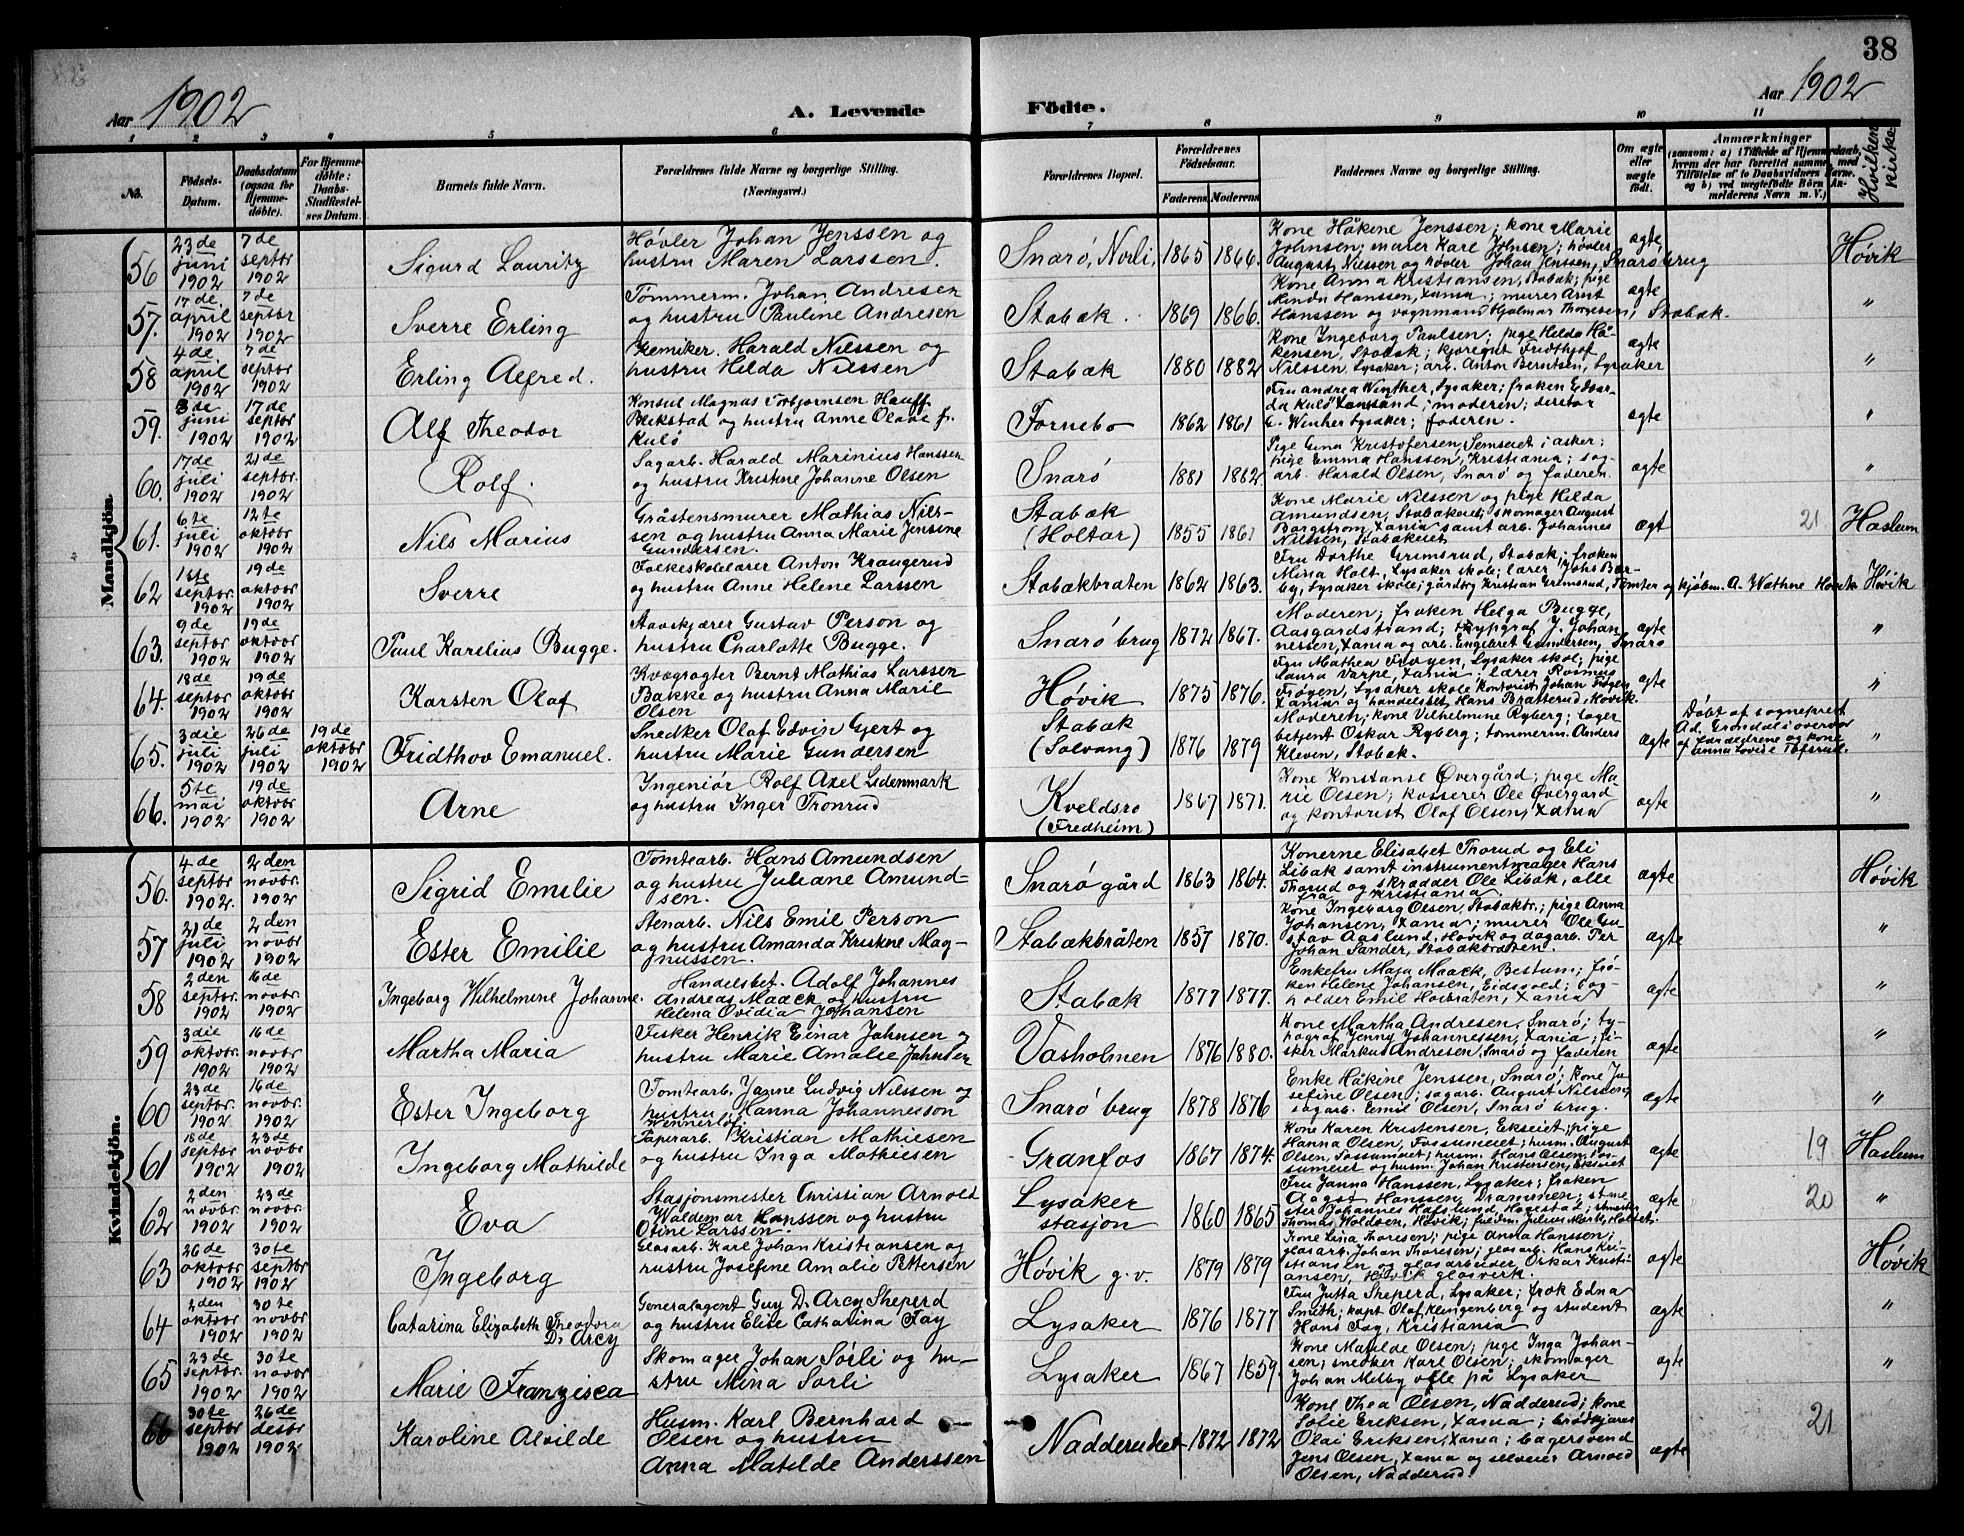 38
Aar 1902
A. Levende
Födte.
Aar 1902
1 2 3 4 5 6 7 8 9 10 11
No.
Födsels-Datum.
Daabsdatum (ogsaa for Hjemme-døbte).
For Hjemme-døbte: Daabs-Stadfæstel-ses Datum.
Barnets fulde Navn.
Forældrenes fulde Navne og borgerlige Stilling. (Næringsvei.)
Forældrenes Bopæl.
Forældrenes Födselsaar.
Faderens Moderens
Faddernes Navne og borgerlige Stilling.
Om ægte eller uægte födt.
Anmærkninger
Hvilken kirke
Mandkjön.
56 23de juni 1902 7de septbr 1902 Sigurd Lauritz
Høvler Johan Jenssen og
hustru Maren Larssen.
Snarö, Norli, 1865 1866.
Kone Håkine Jenssen; kone Marie
Johnsen; murer Karl Johnsen; høvler
August Nilssen og høvler Johan Jenssen, Snarö brug
ægte Høvik
57. 17de april 1902 7de septbr 1902 Sverre Erling
Tømmerm. Johan Andresen
og hustru Pauline Andresen
Stabæk. 1869 1866.
Kone Anna Kristiansen, Stabæk; pige
Hanssen, Xania; murer Arnt
Hanssen og vognmand Hjalmar Thoresen, Stabæk.
ægte "
58 4de april 1902 7de septbr 1902 Erling Alfred.
Kemiker. Harald Nilssen og
hustru Hilda Nilssen
Stabæk 1880 1882
Kone Ingeborg Paulsen; pige Hilda Hå-
kensen, Stabæk; kjøregut Fridthjof
Nilssen, Lysaker; arb. Anton Berntsen, Lysaker
ægte "
59. 3de juni 1902 17de septbr 1902 Alf Theodor
Konsul Magnus Torbjørnsen Hauff
Blikstad og hustru Anne Olave f.
Kulö
Fornebo 1862 1861
Fru Andrea Winther, Lysaker; frøken Edvar-
da Kulö Xansand; moderen;
C. Winther Lysaker; faderen.
ægte "
60. 17de juli 1902 21de septbr. 1902 Rolf.
Sagarb. Harald Marinius Hanssen
og hustru Kristine Johanne Olsen
Snarö 1881 1882
Pige Gina Kristofersen, Semseiet i Asker;
pige Emma Hanssen, Kristiania; sag-
arb. Harald Olsen, Snarö og faderen.
ægte "
61. 6te juli 1902 12te oktobr 1902 Nils Marius
Gråstensmurer Mathias Nils-
sen og hustru Anna Marie Jenssine
Gundersen.
Stabæk
(Holtar) 1855 1861
Kone Marie Nilssen og pige Hilda
Amundsen, Stabækeiet; skomager August
Borgstrøm, Xania samt arb. Johannes
Nilssen, Stabækeiet
ægt 21 Haslum
62 1ste septbr. 1902 19de oktobr 1902 Sverre
Folkeskolelærer Anton Kraugerud
og hustru Anne Helene Larssen
Stabækbraten 1862 1863.
Fru Dorthe Grimsrud, Stabæk; frøken
Mina Holt, Lysaker skole; lærer Johs Bær-
by, Lysaker skole; gårdbr Kristian Grimsrud, Tomter og kjøbm. A. Wathne Høvik
Høvik
63. 9de septbr 1902 19de oktobr 1902 Paul Karilius Bugge.
Stavskjærer Gustav Person og
hustru Charlotte Bugge.
Snarö brug 1872 1867.
Moderen; frøken Helga Bugge,
Aasgaardstrand; typograf J. Johan-
nessen, Xania og arb. Engebret Gundersen, Snarö
ægte "
64. 18de septbr 1902 19de oktobr 1902 Karsten Olaf
Kvægrøgter Bernt Mathias Larssen
Bakke og hustru Anna Marie
Olsen
Høvik 1875 1876.
Fru Mathea Frøyen, Lysaker skol; pige
Laura Varpe, Xania; lærer Rasmus
Frøyen, Lysaker skole kontorist Johan Frøyen
Xania og handelsbet Hans Bratterud, Høvik.
ægte "
65. 3die juli 1902 26de juli 1902 19de oktobr 1902 Fridthov Emanuel.
Snedker Olaf Edvin Gjert og
hustru Marie Gundersen
Stabæk
(Solvang) 1876 1879
Moderen; kone Vilhelmine Ryberg; lager-
betjent Oskar Ryberg; tømmerm. Anders
Kleven, Stabæk.
ægte
Døbt af sogneprest
Ad. Grøndal i overvær
af forældrene og kone
Anna Lovise Tofsrud.
"
66. 5te mai 1902 19de oktobr 1902 Arne
Ingeniør Rolf Axel Lidenmark
og hustru Inger Tronrud
Kveldsro
(Fredheim) 1867 1871.
Kone Konstanse Øvergård; pige Ma-
rie Olsen; kasserer Ole Øvergård
og kontorist Olaf Olsen, Xania
ægte "
Kvindekjön.
56. 4de septbr 1902. 2den novbr. 1902 Sigrid Emilie
Tomtearb. Hans Amundsen
og hustru Juliane Amund-
sen.
Snarö gård 1863 1864.
Konerne Elisabet Thorud og Eli
Libak samt instrumentmager Hans
Thorud og skrædder Ole Libak, alle
fra Kristiania
ægte Høvik
57 21de juli 1902 2den novbr 1902 Ester Emilie
Stenarb. Nils Emil Person
og hustru Amanda Kristine Mag-
nussen.
Stabækbråten 1857 1870.
Kone Ingeborg Olsen, Stabækbr.; pige Anna
Johansen, Xania; murer Ole Gu-
stav Aaslund, Høvik og dagarb. Per
Johan Sander, Stabækbråten.
ægte "
58 2den septbr. 1902 16de novbr. 1902 Ingeborg Wilhelmine Johanne.
Handelsbet. Adolf Johannes
Andreas Maack og hustru
Helena Ovidia Johansen
Stabæk 1877 1877.
Enkefru Maja Maack, Bestum; frø-
ken Helene Johansen, Eidsvold; bog-
holder Emil Holbraten, Xania
ægte "
59 3die oktobr. 1902 16de novbr. 1902 Martha Maria
Fisker Henrik Einar Jahnsen og
hustru Marie Amalie Jahnsen
Vasholmen 1876 1880.
Kone Martha Andresen, Snarö; ty-
pograf Jenny Johannessen, Xania; fi-
sker Markus Andresen, Snarö og faderen
ægte "
60 23de septbr. 1902 16de novbr. 1902 Ester Ingeborg
Tomtearb. Janne Ludvig Nilssen og
hustru Hanna Johanneson
Wennerlöf.
Snarö brug 1878 1876
Enke Håkine Jenssen, Snarö; kone Jo-
sefine Olsen; sagarb. August Nilssen,
sagarb. Emil Olsen, Snarö brug.
ægte "
61 18de septbr 1902 23de novbr 1902 Ingeborg Mathilde
Papirarb. Kristian Mathiesen
og hustru Inga Mathiesen
Granfos 1867 1874.
Kone Karen Kristensen, Ekseiet; pige
Hanna Olsen, Fossumeiet; husm. August
Olsen, Fossumeiet; husm. Hans Olsen, Fos-
sumeiet og husm. Johan Kristensen, Ekseiet
ægte 19 Haslum
62 2den novbr 1902 23de novbr 1902 Eva
Stasjonsmester Christian Arnolt
Waldemar Hanssen og hustru
Otine Larssen.
Lysaker
stasjon 1860 1865
Fru Janna Hanssen, Lysaker; frøken
Aagot Hanssen, Drammen;
Johannes Hafslund,
Thomas Woldsen, Høvik; Julius Mørk,
ægte 20 "
63 26de oktobr 1902 30te septbr 1902 Ingeborg
Glasarb. Karl Johan Kristiansen og
hustru Josefine Amalie Pettersen
Høvik g.v. 1879 1879
Kone Lina Thoresen; pige Anna Hanssen;
glasarb. Johan Thoresen; glasarb. Hans Kri-
stiansen og glasarbeider Oskar Kristi-
ansen, Høvik glasverk.
ægte Høvik
64 2den oktobr 1902 30te novbr 1902 Catarina Elizabeth Theodora
D. Arcy
Generalagent Guy D. Arcy Sheperd
og hustru Elise Catharina Fay
Lysaker 1876 1877
Fru Jutta Sheperd, Lysaker; frøk Edna
Smith; kapt Olaf Klingenberg og student
Hans Fay, Kristiania
ægte "
65 23de septbr. 1902 30te novbr 1902 Marie Franzisca
Skomager Johan Sørli og hu-
stru Mina Sørli
Lysaker 1867 1859.
Kone Matilde Olsen; pige Inga Johan-
sen; snedker Karl Olsen; skomager
Johan Melby alle på Lysaker
ægte "
66 30te septbr 1902 26de desbr 1902 Karoline Alvilde
Husm. Karl Bernhard
Olsen og hustru
Anna Matilde Anderssen
Nadderudeiet 1872 1872
Kone Thea Olsen, Nadderud; kone
Sofie Eriksen, Xania; brødkjører
Olai Eriksen, Xania; bagersvend
Jens Olsen, Xania og selveier Arnold
Olsen, Nadderud.
ægte 21